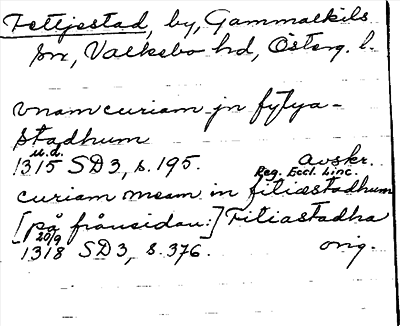 Fettjestad, by, Gammalkils
sn, Valkebo hd, Österg. l.
vnam curiam jn fytya-
stadhum
u.d.
1315 SD3, s. 195. Avskr.
Reg. Eccl. Linc.
curiam meam in fitiæstadhum
[på frånsidan:] Fitiastadha
20/9
1318 SD3, s. 376. orig.